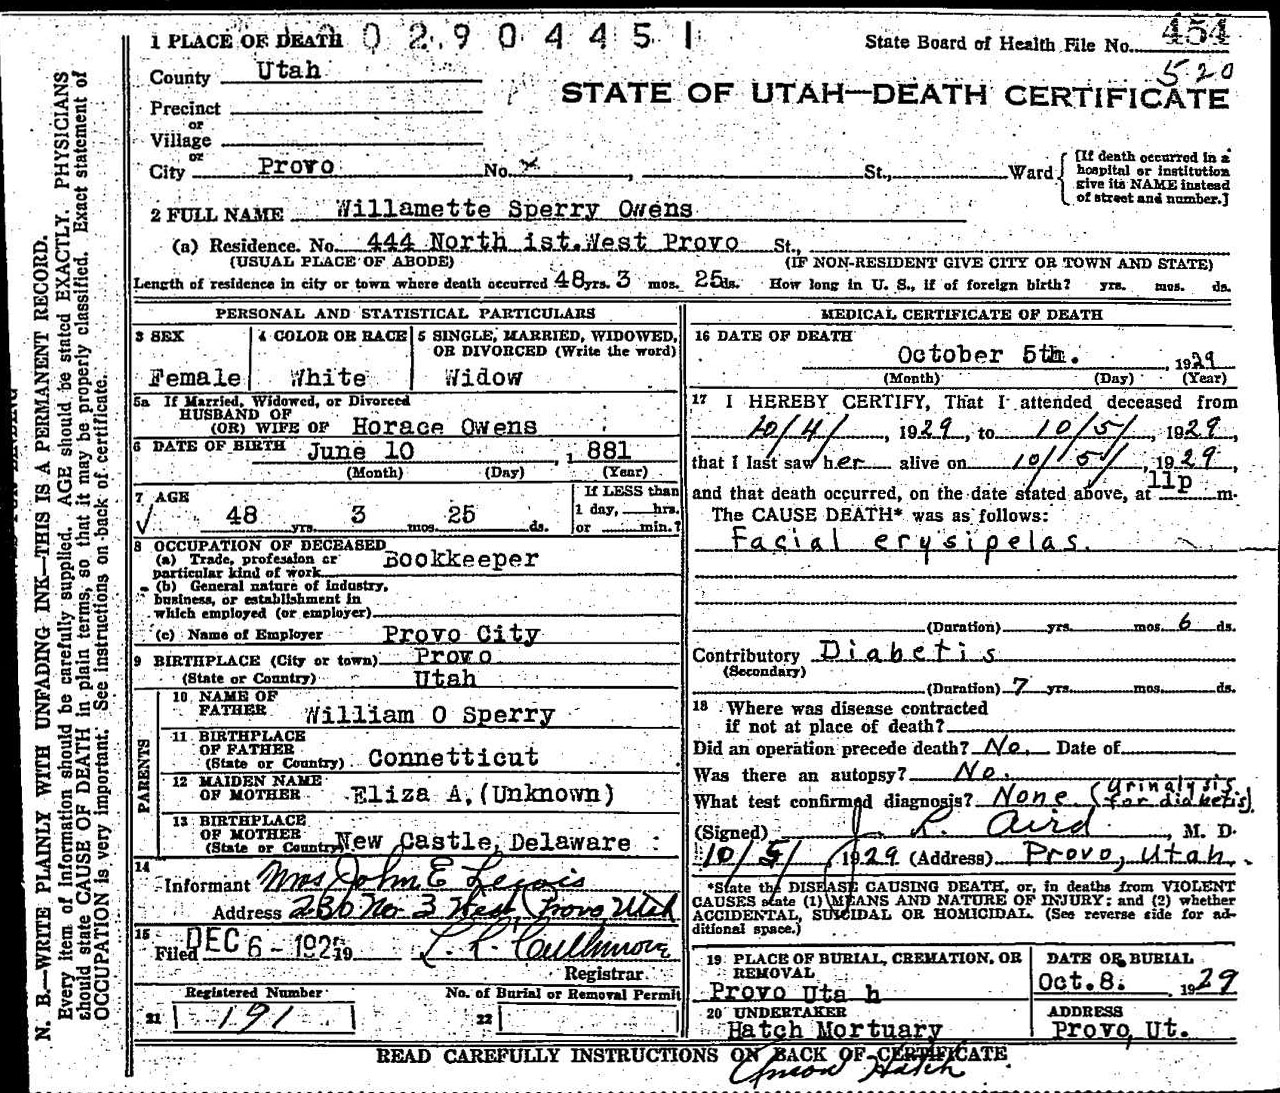 1 PLACE OF DEATH 0 0 2 9 0 4 4 5 1
State Board of Health File No. 454
520
County Utah
STATE OF UTAH—DEATH CERTIFICATE
Precinct
or
Village
or
City Provo No. x , St., Ward
[If death occurred in a
hospital or institution
give its NAME instead
of street and number.]
2 FULL NAME Willamette Sperry Owens
(a) Residence. No. 444 North 1st.West Provo St.,
(USUAL PLACE OF ABODE) (IF NON-RESIDENT GIVE CITY OR TOWN AND STATE)
Length of residence in city or town where death occurred 48 yrs. 3 mos. 25 ds. How long in U. S., if of foreign birth? yrs. mos. ds.
N. B.—WRITE PLAINLY WITH UNFADING INK—THIS IS A PERMANENT RECORD.
Every item of information should be carefully supplied. AGE should be stated EXACTLY. PHYSICIANS
should state CAUSE OF DEATH in plain terms, so that it may be properly classified. Exact statement of
OCCUPATION is very important. See instructions on back of certificate.
PERSONAL AND STATISTICAL PARTICULARS
3 SEX
Female
4 COLOR OR RACE
White
5 SINGLE, MARRIED, WIDOWED,
OR DIVORCED (Write the word)
Widow
5a If Married, Widowed, or Divorced
HUSBAND OF
(OR) WIFE OF Horace Owens
6 DATE OF BIRTH June 10 , 1881
(Month) (Day) (Year)
7 AGE
48 yrs. 3 mos. 25 ds.
If LESS than
1 day, hrs.
or min.?
8 OCCUPATION OF DECEASED
(a) Trade, profession or
particular kind of work Bookkeeper
(b) General nature of industry,
business, or establishment in
which employed (or employer)
(c) Name of Employer Provo City
9 BIRTHPLACE (City or town) Provo
(State or Country) Utah
PARENTS
10 NAME OF
FATHER William O Sperry
11 BIRTHPLACE
OF FATHER
(State or Country) Connetticut
12 MAIDEN NAME
OF MOTHER Eliza A.(Unknown)
13 BIRTHPLACE
OF MOTHER
(State or Country) New Castle, Delaware
14
Informant Mrs John E Lewis
Address 236 No 3 West, Provo, Utah
15
Filed DEC 6 - 1929 19
Registrar
Registered Number
21 191
No. of Burial or Removal Permit
22
MEDICAL CERTIFICATE OF DEATH
16 DATE OF DEATH
October 5th. , 1929
(Month) (Day) (Year)
17 I HEREBY CERTIFY, That I attended deceased from
10/4/ , 1929, to 10/5/ , 1929,
that I last saw her alive on 10/5/ , 1929,
and that death occurred, on the date stated above, at 11p m.
The CAUSE DEATH* was as follows:
Facial erysipelas.
(Duration) yrs. mos. 6 ds.
Contributory Diabetis
(Secondary)
(Duration) 7 yrs. mos. ds.
18 Where was disease contracted
if not at place of death?
Did an operation precede death? No. Date of
Was there an autopsy? No.
What test confirmed diagnosis? None (urinalysis
for diabetis).
(Signed) J. R. Aird , M. D.
10/5/ , 1929 (Address) Provo, Utah.
*State the DISEASE CAUSING DEATH, or, in deaths from VIOLENT
CAUSES state (1) MEANS AND NATURE OF INJURY; and (2) whether
ACCIDENTAL, SUICIDAL OR HOMICIDAL. (See reverse side for ad-
ditional space.)
19 PLACE OF BURIAL, CREMATION, OR
REMOVAL
Provo Uta h
DATE OF BURIAL
Oct.8. , 1929
20 UNDERTAKER
Hatch Mortuary
ADDRESS
Provo, Ut.
READ CAREFULLY INSTRUCTIONS ON BACK OF CERTIFICATE
Hatch